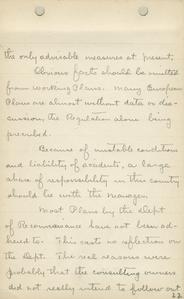 the only advisable measures at present.
Obvious facts should be omitted
from working Plans. Many European
Plans are almost without data or dis-
cussion, the Regulation alone being
prescribed.
Because of unstable conditions
and liability of accidents, a large
share of responsibility in this country
should lie with the manager.
Most Plans by the Dept
of Reconnaissance have not been ad-
hered to. This casts no reflection on
the Dept. The real reasons were
probably that the consulting owners
did not really intend to follow out